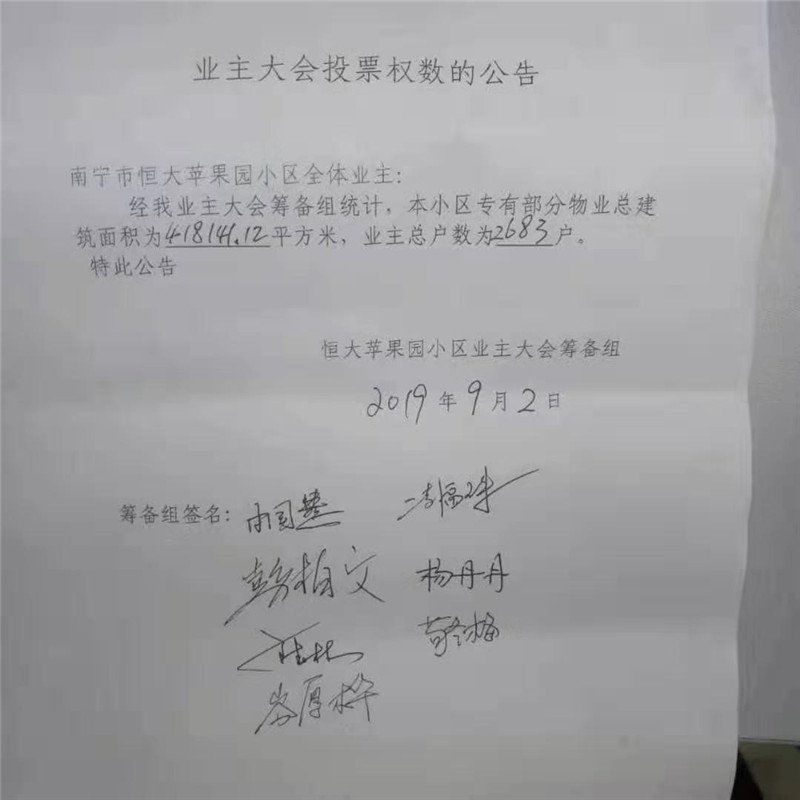 业主大会投票权数的公告
南宁市恒大苹果园小区全体业主:
经我业主大会筹备组统计，本小区专有部分物业总建
筑面积为418141.12平方米，业主总户数为2683户。
特此公告
恒大苹果园小区业主大会筹备组
2019年9月2日
筹备组签名:
彭柏文 杨丹丹